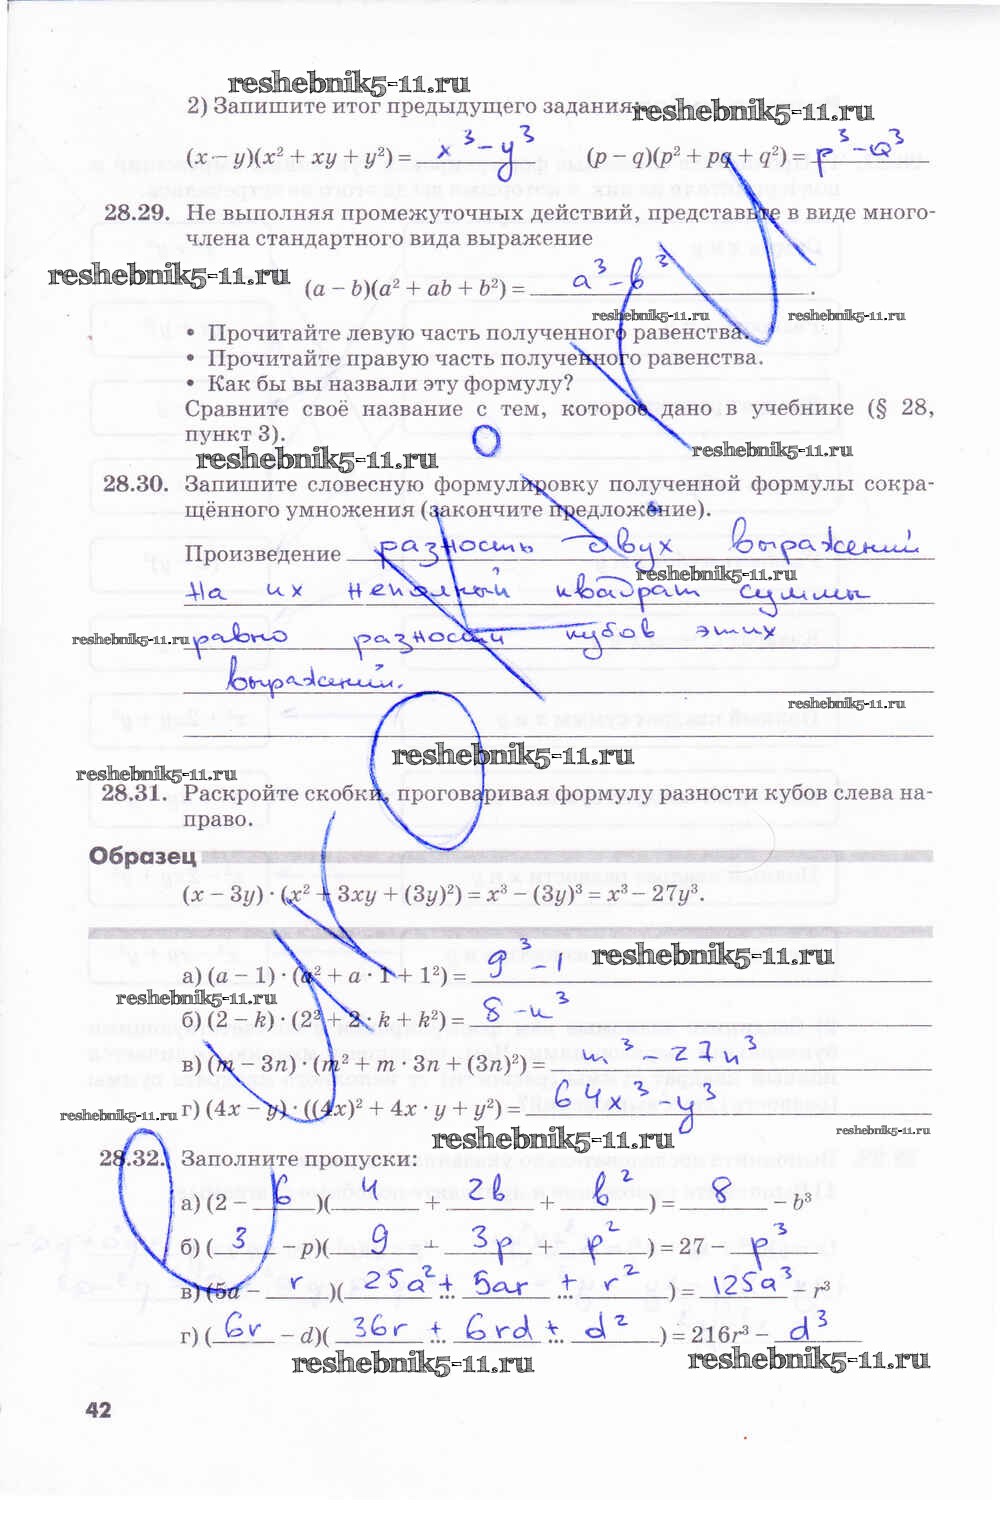 reshebnik5-11.ru
2) Запишите итог предыдущего задания:
reshebnik5-11.ru
(x − y)(x² + xy + y²) = x³ − y³ (p − q)(p² + pq + q²) = p³ − q³
28.29. Не выполняя промежуточных действий, представьте в виде много-
члена стандартного вида выражение
reshebnik5-11.ru
(a − b)(a² + ab + b²) = a³ − b³.
reshebnik5-11.ru reshebnik5-11.ru
• Прочитайте левую часть полученного равенства.
• Прочитайте правую часть полученного равенства.
• Как бы вы назвали эту формулу?
Сравните своё название с тем, которое дано в учебнике (§ 28,
пункт 3).
reshebnik5-11.ru
reshebnik5-11.ru
28.30. Запишите словесную формулировку полученной формулы сокра-
щённого умножения (закончите предложение).
Произведение разность двух выражений
reshebnik5-11.ru
на их неполный квадрат суммы
reshebnik5-11.ru равно разности кубов этих
выражений.
reshebnik5-11.ru
reshebnik5-11.ru
reshebnik5-11.ru
28.31. Раскройте скобки, проговаривая формулу разности кубов слева на-
право.
Образец
(x − 3y) · (x² + 3xy + (3y)²) = x³ − (3y)³ = x³ − 27y³.
reshebnik5-11.ru
а) (a − 1) · (a² + a · 1 + 1²) = a³ − 1
reshebnik5-11.ru
б) (2 − k) · (2² + 2 · k + k²) = 8 − k³
в) (m − 3n) · (m² + m · 3n + (3n)²) = m³ − 27n³
г) (4x − y) · ((4x)² + 4x · y + y²) = 64x³ − y³
reshebnik5-11.ru
reshebnik5-11.ru
reshebnik5-11.ru
28.32. Заполните пропуски:
а) (2 − b)(4 + 2b + b²) = 8 − b³
б) (3 − p)(9 + 3p + p²) = 27 − p³
в) (5a − r)(25a² + ... 5ar + ... r²) = 125a³ − r³
г) (6r − d)(36r + ... 6rd + ... d²) = 216r³ − d³
reshebnik5-11.ru reshebnik5-11.ru
42